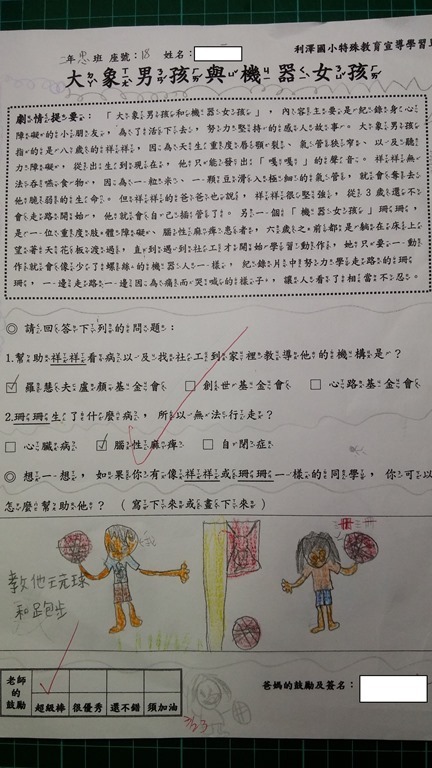 二年忠班 座號：18 姓名：
利澤國小特殊教育宣導學習單
大象男孩與機器女孩
劇情提要：「大象男孩和機器女孩」，內容主要是紀錄身心
障礙的小朋友，為了活下去，努力堅持的感人故事。大象男孩
指的是八歲的祥祥，因為天生重度唇顎裂、氣管狹窄、以及聽
力障礙，從出生到現在，他只能發出「嘎嘎」的聲音。祥祥無
法吞嚥食物，因為一粒米、一顆豆滑入極細的氣管，就會奪去
他脆弱的生命。但祥祥的爸爸也說，祥祥很堅強，從3歲還不
會走路開始，他就會自己插管了。另一個「機器女孩」珊珊，
是一位重度肢體障礙、腦性麻痺患者，六歲之前都是躺在床上
望著天花板渡過，直到遇到社工才開始學習動作，她只要一動
作就會像少了螺絲的機器人一樣，紀錄片中努力學走路的珊
珊，一邊走路一邊因為痛而哭喊的樣子，讓人看了相當不忍。
◎ 請回答下列的問題：
1.幫助祥祥看病以及找社工到家裡教導他的機構是？
☑ 羅慧夫顱顏基金會 □ 創世基金會 □ 心路基金會
2.珊珊生了什麼病，所以無法行走？
□ 心臟病 ☑ 腦性麻痺 □ 自閉症
◎ 想一想，如果你有像祥祥或珊珊一樣的同學，你可以
怎麼幫助他？（寫下來或畫下來）
教他玩球
和跑步
老師的鼓勵
超級棒 很優秀 還不錯 須加油
爸媽的鼓勵及簽名：
3/23